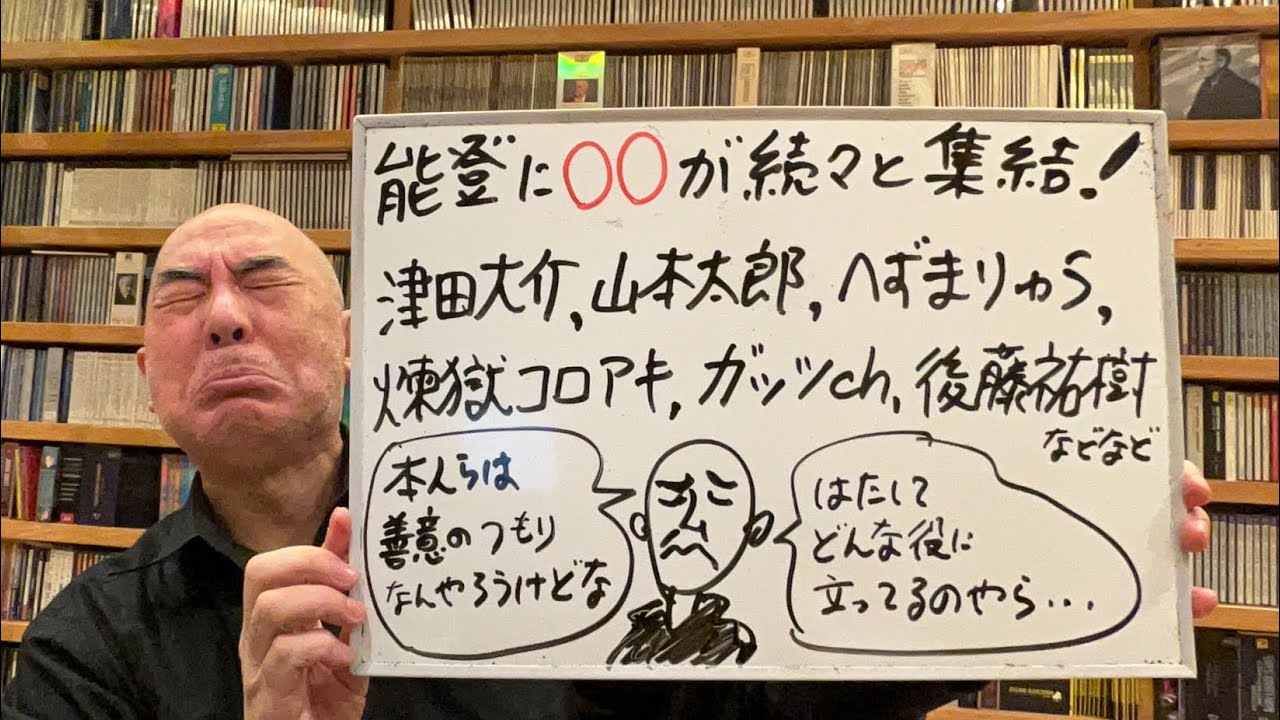 能登に〇〇が続々と集結！
津田大介,山本太郎,へずまりゅう,
煉獄コロアキ,ガッツch,後藤祐樹
などなど
本人らは
善意のつもり
なんやろうけどな
はたして
どんな役に
立ってるのやら・・・